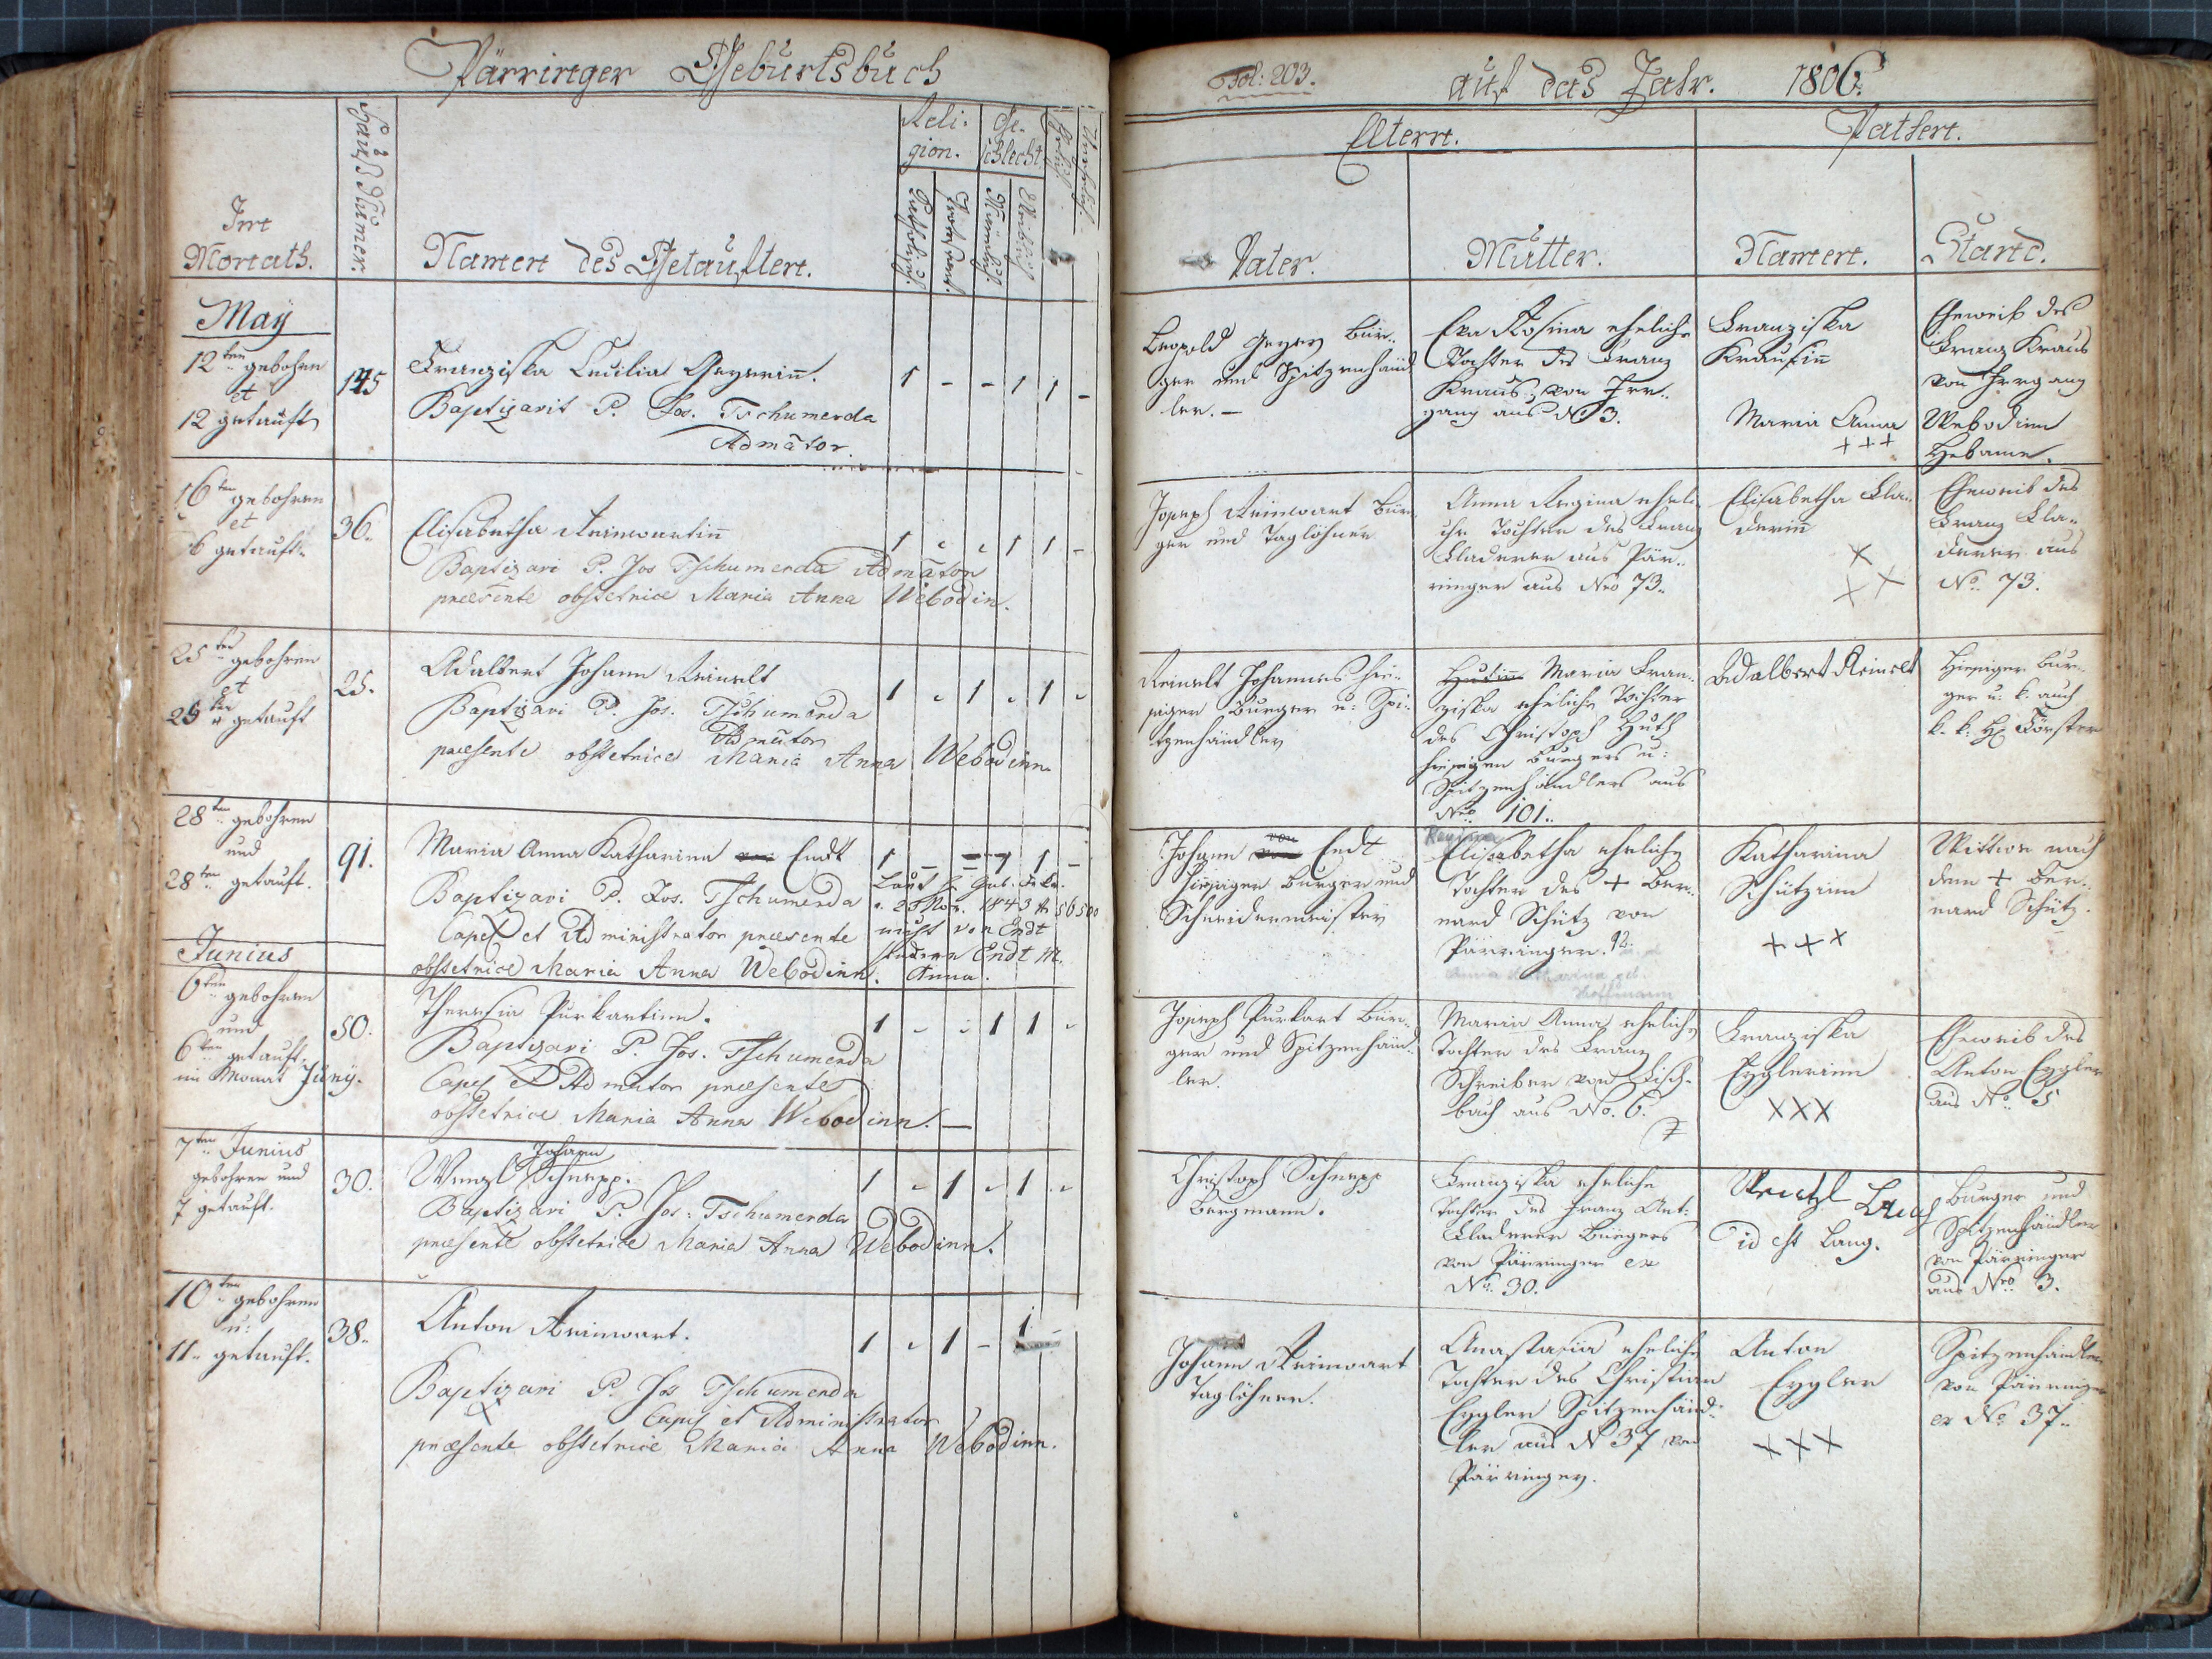 Pärringer Geburtsbuch
Fol: 203.
auf das Jahr. 1806.
Im
Monath.
Hauß Numer
Namen des Getauften.
Reli-
gion.
Ge-
schlecht
Katholisch.
Protestant.
Männlich.
Weiblich
Ehelich.
Unehelich.
Eltern.
Pathen.
Vater.
Mutter.
Namen.
Stand.
May
12ten gebohren
et
12 getauft
145
Franziska Cecilia Geyerinn.
Baptizavit P. Jos. Tschumerda
Admãtor.
1 - - 1 1 -
Leopold Geyer Bür-
ger und Spitzenhänd
ler. -
Eva Rosina eheliche
Tochter des Franz
Kraus, von Irr-
gang aus N 3.
Franziska
Krausinn
Maria Anna
+++
Eheweib des
Franz Kraus
von Irrgang
Webodinn
Hebame.
16ten gebohren
et
16 getauft.
36.
Elisabetha Reinwartinn
Baptizavi P. Jos Tschumerda Admãtor
præsente obstetrice Maria Anna Webodin.
1 - - 1 1 -
Joseph Reinwart Bür-
ger und Taglöhner
Anna Regina eheli-
che Tochter des Franz
Claderer aus Pär-
ringer aus Nro 73.
Elisabetha Cla-
derinn
X
X X
Eheweib des
Franz Cla-
derer aus
No. 73.
25ten gebohren
et
25ten getauft
25.
Adalbert Johann Reinelt
Baptizavi P. Jos. Tschumerda
Admãtor
præsente obstetrice Maria Anna Webodinn
1 - 1 - 1 -
Reinelt Johannes hie-
siger Burger u: Spi-
tzenhändler
Hutinn Maria Fran-
ziska eheliche Tochter
des Christoph Huth
hiesigen Burgers u:
Spitzenhändlers aus
Nro 101.
Adalbert Reinelt
Hiesiger Bur-
ger u: k. auch
k. k. H Förster
28ten gebohren
und
28ten getauft.
91.
Maria Anna Katharina von Endt
Baptizavi P. Jos. Tschumerda
Capel et Administrator præsente
obstetrice Maria Anna Webodinn.
1 - - 1 1 -
Laut h. Gub. Dekr.
v. 28 Nov. 1843 N 56500
nicht von Endt
sondern Endt M.
Anna.
Johann von Endt
hiesiger Burger und
Schneidermeister
Regina
Elisabetha eheliche
Tochter des + Ber-
nard Schütz von
Pärringer. 92.
Anna Katharina geb.
Hoffmann
Katharina
Schützinn
+++
Wittwe nach
dem + Ber-
nard Schütz.
Junius
6ten gebohren
und
6ten getauft.
im Monat Juny.
50.
Theresia Purkartinn.
Baptizavi P. Jos. Tschumerda
Capel et Admãtor præsente
obstetrice Maria Anna Webodinn. -
1 - - 1 1 -
Joseph Purkart Bür-
ger und Spitzenhänd-
ler.
Maria Anna eheliche
Tochter des Franz
Schreiber von Fisch-
bach aus No. 6.
Franziska
Eyglerinn
XXX
Eheweib des
Anton Eygler
aus No 5
7ten Junius
gebohren und
7 getauft.
30.
Johann
Wenzl Schnepp.
Baptizavi P. Jos. Tschumerda
præsente obstetrice Maria Anna Webodinn.
1 - 1 - 1 -
Christoph Schnepp
Bergmann.
Franziska eheliche
Tochter des Franz Ant:
Claderer Bürgers
von Pärringer ex
No. 30.
Wentzl Lang
id est Lang.
Burger und
Spitzenhändler
von Pärringer
aus Nro 3.
10ten gebohren
u:
11. getauft.
38.
Anton Reinwart.
Baptizavi P. Jos Tschumerda
Capel et Administrator
præsente obstetrice Maria Anna Webodinn.
1 - 1 - 1 -
Johann Reinwart
Taglöhner.
Anastasia eheliche
Tochter des Christian
Eygler Spitzenhänd-
ler aus N 37 von
Pärringer.
Anton
Eygler
+++
Spitzenhändler
von Pärringer
ex No 37.